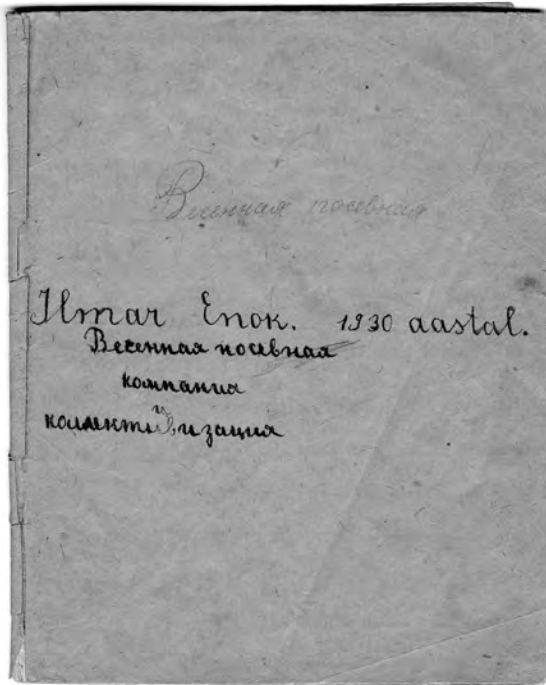 Весенная посевная
Ilmar Enok. 1930 aastal.
Весенная посевная
компания
и
коллективизация